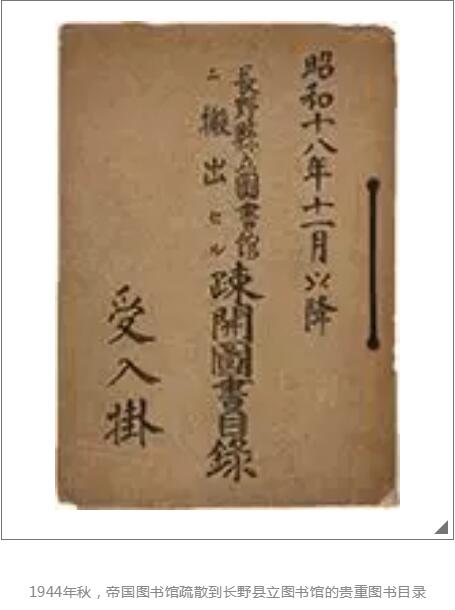 昭和十八年十一月以降
長野縣立圖書館
ニ搬出セル疎開圖書目錄
受入掛
1944年秋，帝国图书馆疏散到长野县立图书馆的贵重图书目录